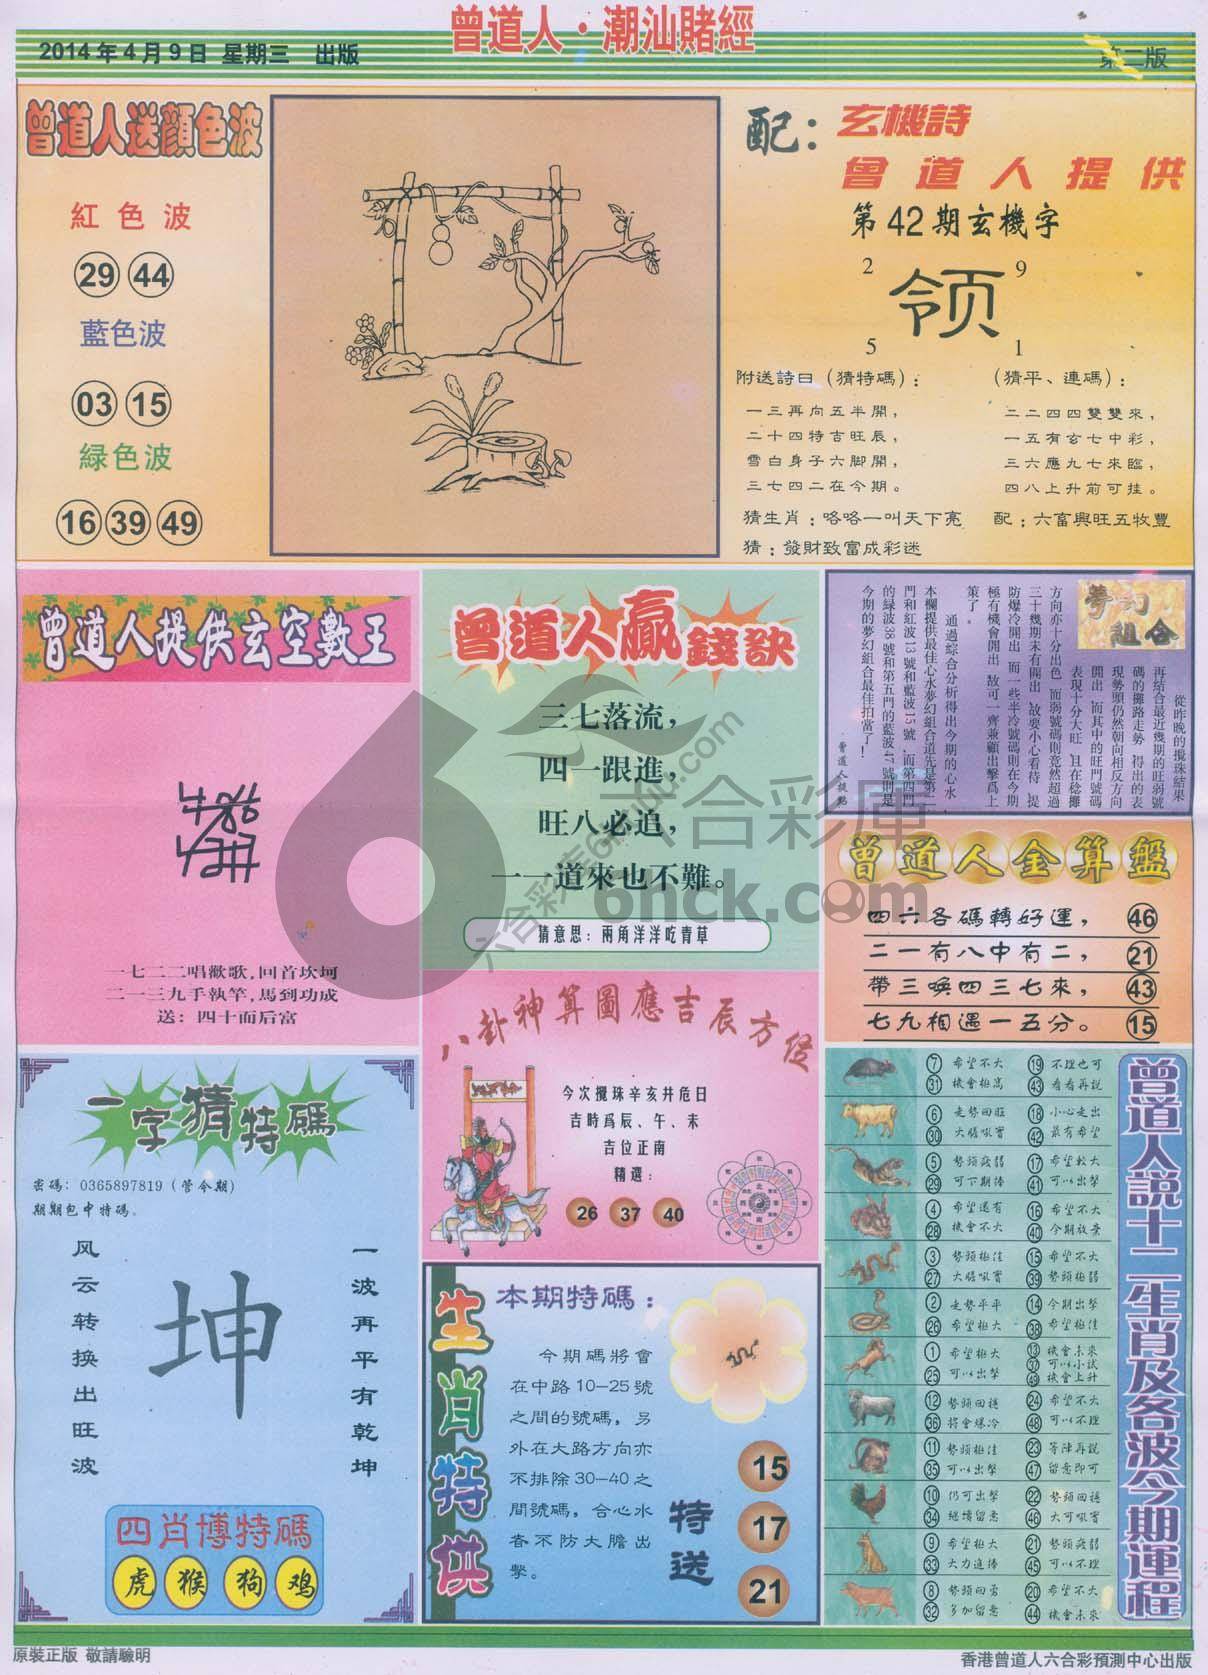 曾道人·潮汕賭經
2014年4月9日 星期三 出版
第二版
曾道人送顔色波
紅色波
29 44
藍色波
03 15
緑色波
16 39 49
配：玄機詩
曾道人提供
第42期玄機字
2 9
领
5 1
附送詩曰（猜特碼）：
一三再向五半開，
二十四特吉旺辰，
雪白身子六脚開，
三七四二在今期。
（猜平、連碼）：
二二四四雙雙來，
一五有玄七中彩，
三六應九七來臨，
四八上升前可挂。
猜生肖：咯咯一叫天下亮
配：六富興旺五牧豐
猜：發財致富成彩迷
曾道人提供玄空數王
一七二二唱歡歌，回首坎坷
二一三九手執竿，馬到功成
送：四十而后富
曾道人贏錢訣
三七落流，
四一跟進，
旺八必追，
一一道來也不難。
猜意思：兩角洋洋吃青草
夢幻組合
從昨晚的攪珠結果
再結合最近幾期的旺弱號
碼的攤路走勢 得出的表
現勢頭仍然朝向相反方向
開出 而其中的旺門號碼
表現十分大旺 且在稔攤
方向亦十分出色 而弱號則竟然超過
三十幾期未有開出 故要小心看待 提
防爆冷開出 而一些半冷號碼則在今期
極有機會開出 故可一齊兼顧出擊爲上
策了。
通過綜合分析得出今期的心水
本欄提供最佳心水夢幻組合道先是第二
門和紅波13號和藍波15號 而第四門
的緑波38號和第五門的藍波47號則是
今期的夢幻組合最佳拍當了！
曾道人提點
曾道人金算盤
四六各碼轉好運， 46
二一有八中有二， 21
帶三喚四三七來， 43
七九相遇一五分。 15
八卦神算圖應吉辰方位
今次攪珠辛亥井危日
吉時爲辰、午、未
吉位正南
精選：
26 37 40
一字猜特碼
密碼：0365897819（管今期）
期期包中特碼。
一波再平有乾坤
坤
风云转换出旺波
四肖博特碼
虎 猴 狗 鸡
生肖特供
本期特碼：
今期碼將會
在中路10—25號
之間的號碼，另
外在大路方向亦
不排除30—40之
間號碼，合心水
者不防大膽出
擊。
特送
15
17
21
曾道人説十二生肖及各波今期運程
7 希望不大 19 不理也可
31 機會極高 43 看看再説
6 走勢回旺 18 小心走出
30 大膽吼實 42 最有希望
5 勢頭疲弱 17 希望較大
29 可下期捧 41 可以出擊
4 希望還有 16 希望不大
28 機會不大 40 今期放棄
3 勢頭極佳 15 希望不大
27 大膽吼實 39 勢頭極弱
2 走勢平平 14 今期出擊
26 希望極大 38 希望極佳
1 希望極大 13 機會未來
25 可以出擊 37 可以小試
49 機會上升
12 勢頭回穩 24 希望不大
36 將會爆冷 48 可以不理
11 勢頭極佳 23 等陣再説
35 可以出擊 47 留意即可
10 仍可出擊 22 勢頭回穩
34 絕墻留意 46 大可吼實
9 希望極大 21 勢頭疲弱
33 大力追捧 45 可以不理
8 勢頭回勇 20 希望不大
32 多加留意 44 機會未來
六合彩庫
6hck.com
原裝正版 敬請驗明
香港曾道人六合彩預測中心出版